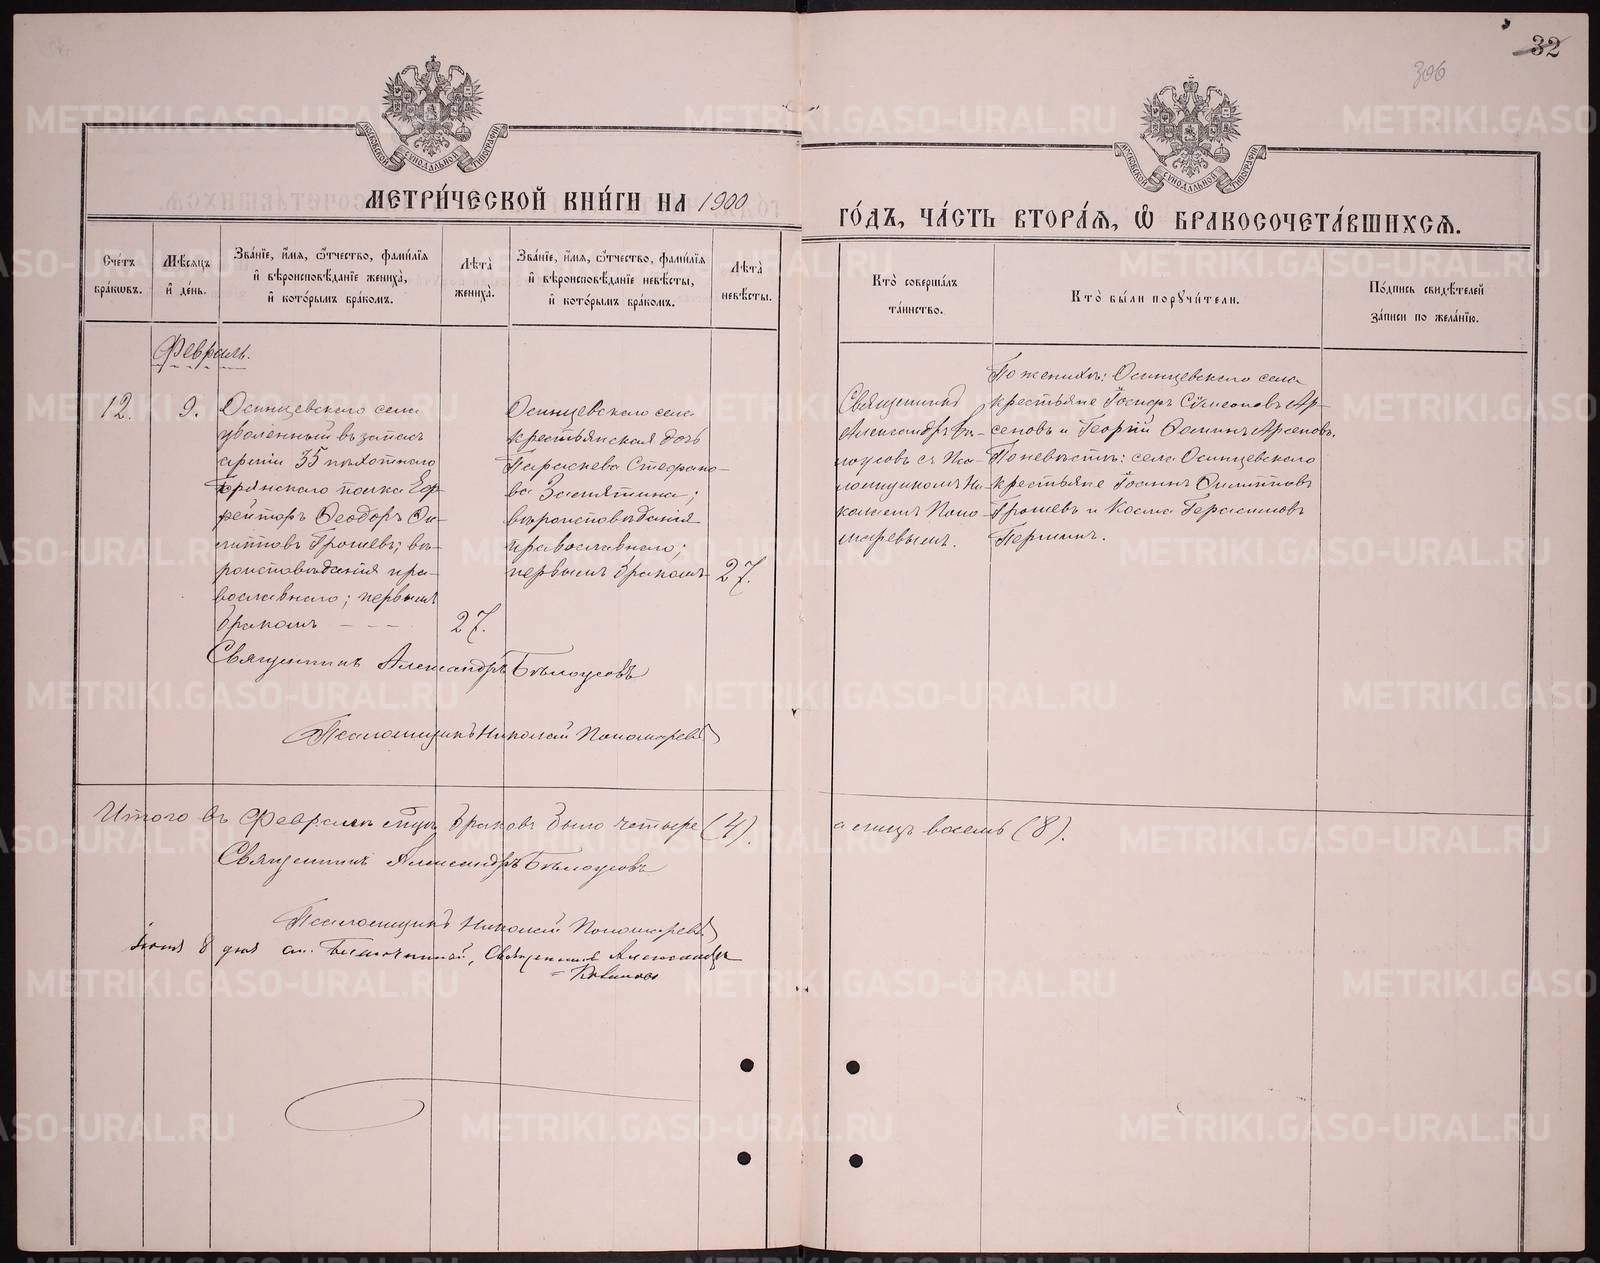 32
306
МОСКОВСКОЙ СѴНОДАЛЬНОЙ ТИПОГРАФІИ
МОСКОВСКОЙ СѴНОДАЛЬНОЙ ТИПОГРАФІИ
МЕТРИ́ЧЕСКОЙ КНИ́ГИ НА 1900
ГО́ДЪ, ЧА́СТЬ ВТОРА́Ѧ, Ѡ҆ БРАКОСОЧЕТА́ВШИХСѦ.
Сче́тъ бра́кѡвъ.
Мѣ́сѧцъ и҆ де́нь.
Зва́нїе, и҆́мѧ, ѻ҆́тчество, фами́лїѧ и҆ вѣроисповѣ́данїе жениха̀, и҆ кото́рымъ бра́комъ.
Лѣ́та жениха̀.
Зва́нїе, и҆́мѧ, ѻ҆́тчество, фами́лїѧ и҆ вѣроисповѣ́данїе невѣ́сты, и҆ кото́рымъ бра́комъ.
Лѣ́та невѣ́сты.
Кто̀ соверша́лъ та́инство.
Кто̀ бы́ли порꙋчи́тели.
По́дпись свидѣ́телей за́писи по жела́нїю.
Февраль.
12.
9.
Осинцевскаго села
уволенный въ запасъ
арміи 35 пѣхотнаго
Брянскаго полка Еф-
рейторъ Ѳеодоръ Фи-
липповъ Грошевъ; вѣ-
роисповѣданія пра-
вославнаго; первымъ
бракомъ - - -
27.
Осинцевскаго села
крестьянская дочь
Параскева Стефано-
ва Замятина;
вѣроисповѣданія
православнаго;
первымъ бракомъ
27.
Священникъ
Александръ Бѣ-
лоусовъ съ Пса-
ломщикомъ Ни-
колаемъ Поно-
маревымъ.
По женихѣ: Осинцевскаго села
крестьяне Госпаръ Сѵмеоновъ Ар-
сеновъ и Георгій Ѳоминъ Арсеновъ.
По невѣстѣ: села Осинцевскаго
крестьяне Іоаннъ Филипповъ
Грошевъ и Косма Герасимовъ
Пермин.
Священникъ Александръ Бѣлоусовъ
Псаломщикъ Николай Пономаревъ
Итого въ Февралѣ мѣсяцѣ браковъ было четыре (4).
а лицъ восемь (8).
Священникъ Александръ Бѣлоусовъ
Псаломщикъ Николай Пономаревъ
Іюня 8 дня см. Благочинный, Священникъ Александръ
METRIKI.GASO-URAL.RU